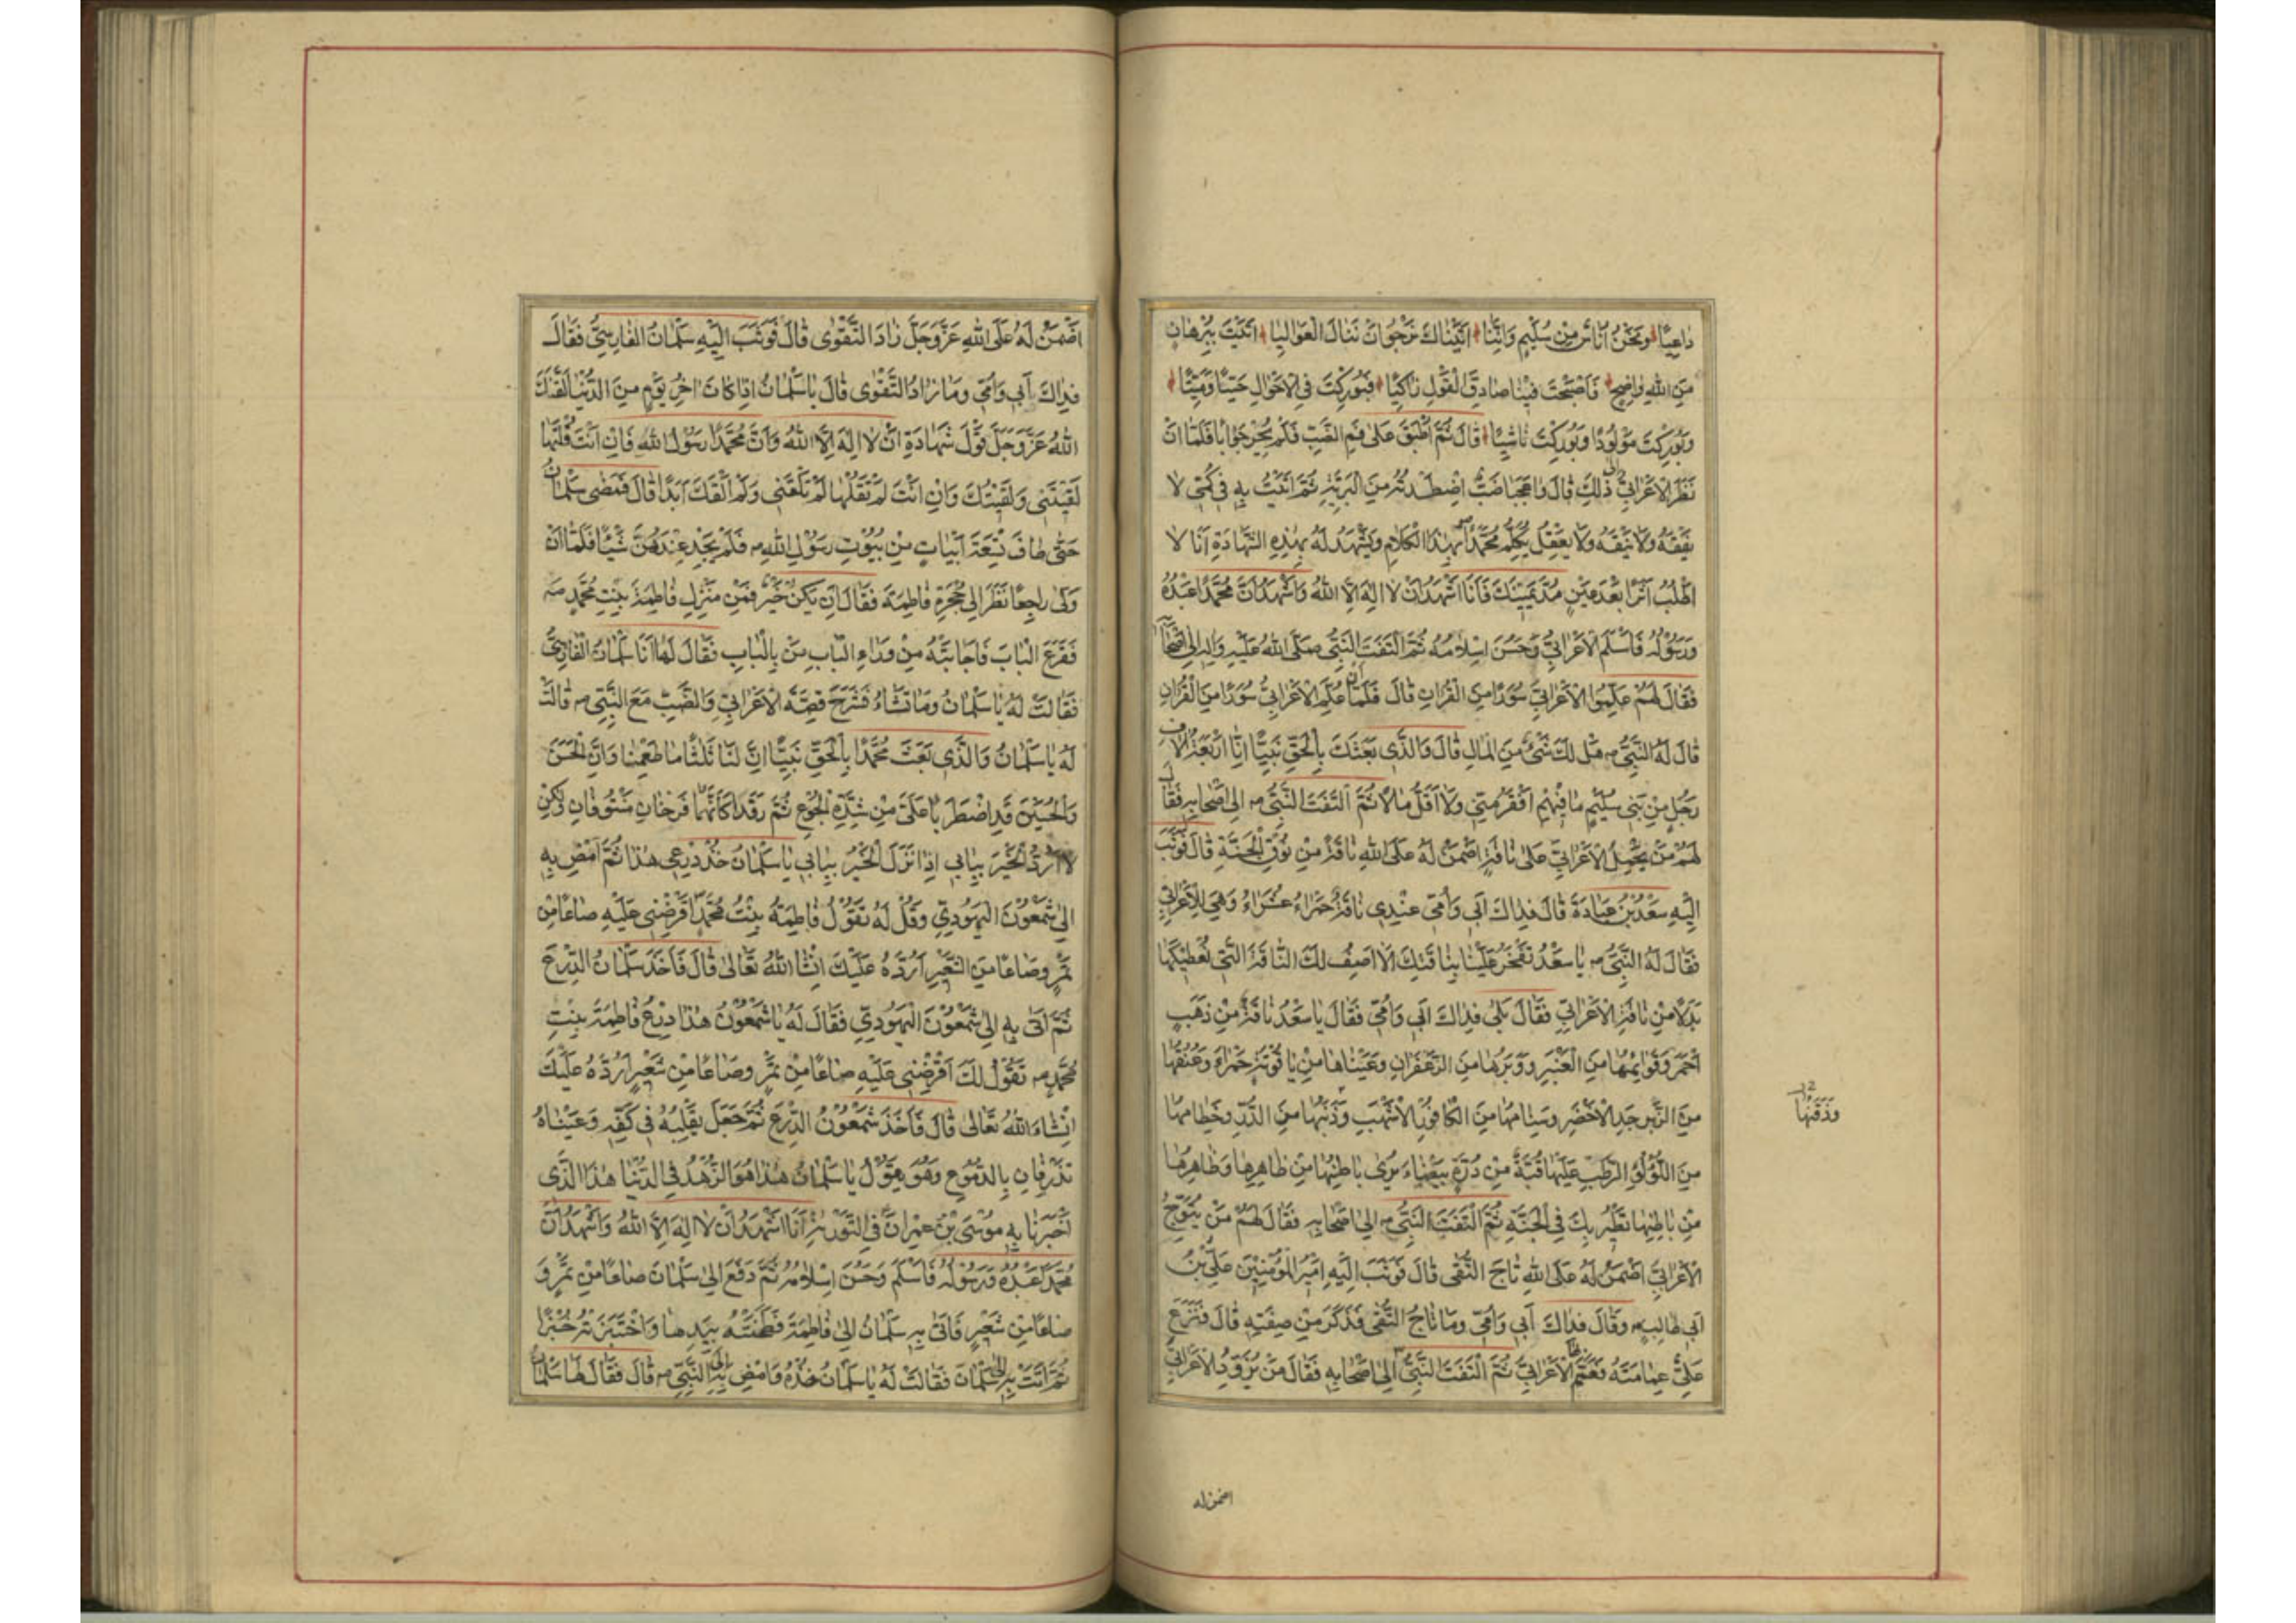 دٰاعِيًا وَنَحْنُ اُنٰاسٌ مِنْ سُلَيْمٍ وَاِنَّنٰا اَتَيْنٰاكَ نَرْجُو اَنْ نَنٰالَ الْعَوٰالِيٰا اَتَيْتَ بِبُرْهٰانٍ
مِنَ اللهِ وٰاضِحٍ فَاَصْبَحْتَ فِينٰا صٰادِقَ الْقَوْلِ زٰاكِيًا فَبُورِكْتَ فِي الْاَحْوٰالِ حَيًّا وَمَيِّتًا
وَبُورِكْتَ مَوْلُودًا وَبُورِكْتَ نٰاشِيًا قٰالَ ثُمَّ اَطْبَقَ عَلٰى فَمِ الضَّبِّ فَلَمْ يُحِرْ جَوٰابًا فَلَمّٰا اَنْ
نَظَرَ الْاَعْرٰابِيُّ اِلٰى ذٰلِكَ قٰالَ وٰاعَجَبٰا ضَبٌّ اصْطَدْتُهُ مِنَ الْبَرِّيَّةِ ثُمَّ اَتَيْتُ بِهِ فِي كُمِّي لٰا
يَفْقَهُ وَلٰا يَنْقَهُ وَلٰا يَعْقِلُ يُكَلِّمُ مُحَمَّدًا بِهٰذَا الْكَلٰامِ وَيَشْهَدُ لَهُ بِهٰذِهِ الشَّهٰادَةِ اَنَا لٰا
اَطْلُبُ اَثَرًا بَعْدَ عَيْنٍ مُدَّ يَمِينَكَ فَاَنَا اَشْهَدُ اَنْ لٰا اِلٰهَ اِلَّا اللهُ وَاَشْهَدُ اَنَّ مُحَمَّدًا عَبْدُهُ
وَرَسُولُهُ فَاَسْلَمَ الْاَعْرٰابِيُّ وَحَسُنَ اِسْلٰامُهُ ثُمَّ الْتَفَتَ النَّبِيُّ صَلَّى اللهُ عَلَيْهِ وَاٰلِهِ اِلٰى اَصْحٰابِهِ
فَقٰالَ لَهُمْ عَلِّمُوا الْاَعْرٰابِيَّ سُوَرًا مِنَ الْقُرْاٰنِ قٰالَ فَلَمّٰا اَنْ عُلِّمَ الْاَعْرٰابِيُّ سُوَرًا مِنَ الْقُرْاٰنِ
قٰالَ لَهُ النَّبِيُّ ص هَلْ لَكَ شَيْءٌ مِنَ الْمٰالِ قٰالَ وَالَّذِي بَعَثَكَ بِالْحَقِّ نَبِيًّا اِنّٰا اَرْبَعَةُ اٰلٰافِ
رَجُلٍ مِنْ بَنِي سُلَيْمٍ مٰا فِيهِمْ اَفْقَرُ مِنِّي وَلٰا اَقَلُّ مٰالًا ثُمَّ الْتَفَتَ النَّبِيُّ ص اِلٰى اَصْحٰابِهِ فَقٰالَ
لَهُمْ مَنْ يَحْمِلُ الْاَعْرٰابِيَّ عَلٰى نٰاقَةٍ اَضْمَنُ لَهُ عَلَى اللهِ نٰاقَةً مِنْ نُوقِ الْجَنَّةِ قٰالَ فَوَثَبَ
اِلَيْهِ سَعْدُ بْنُ عُبٰادَةَ قٰالَ فِدٰاكَ اَبِي وَاُمِّي عِنْدِي نٰاقَةٌ حَمْرٰاءُ عُشَرٰاءُ وَهِيَ لِلْاَعْرٰابِيِّ
فَقٰالَ لَهُ النَّبِيُّ ص يٰا سَعْدُ تَفْخَرُ عَلَيْنٰا بِنٰاقَتِكَ اَلٰا اَصِفُ لَكَ النّٰاقَةَ الَّتِي نُعْطِيكَهٰا
بَدَلًا مِنْ نٰاقَةِ الْاَعْرٰابِيِّ فَقٰالَ بَلٰى فِدٰاكَ اَبِي وَاُمِّي فَقٰالَ يٰا سَعْدُ نٰاقَةٌ مِنْ ذَهَبٍ
اَحْمَرَ وَقَوٰائِمُهٰا مِنَ الْعَنْبَرِ وَوَبَرُهٰا مِنَ الزَّعْفَرٰانِ وَعَيْنٰاهٰا مِنْ يٰاقُوتَةٍ حَمْرٰاءَ وَعُنُقُهٰا
مِنَ الزَّبَرْجَدِ الْاَخْضَرِ وَسَنٰامُهٰا مِنَ الْكٰافُورِ الْاَشْهَبِ وَذَنَبُهٰا مِنَ الدُّرِّ وَخِطٰامُهٰا
مِنَ اللُّؤْلُؤِ الرَّطْبِ عَلَيْهٰا قُبَّةٌ مِنْ دُرَّةٍ بَيْضٰاءَ يُرٰى بٰاطِنُهٰا مِنْ ظٰاهِرِهٰا وَظٰاهِرُهٰا
مِنْ بٰاطِنِهٰا تَطِيرُ بِكَ فِي الْجَنَّةِ ثُمَّ الْتَفَتَ النَّبِيُّ ص اِلٰى اَصْحٰابِهِ فَقٰالَ لَهُمْ مَنْ يُتَوِّجُ
الْاَعْرٰابِيَّ اَضْمَنُ لَهُ عَلَى اللهِ تٰاجَ التُّقٰى قٰالَ فَوَثَبَ اِلَيْهِ اَمِيرُ الْمُؤْمِنِينَ عَلِيُّ بْنُ
اَبِي طٰالِبٍ وَقٰالَ فِدٰاكَ اَبِي وَاُمِّي وَمٰا تٰاجُ التُّقٰى فَذَكَرَ مِنْ صِفَتِهِ قٰالَ فَنَزَعَ
عَلِيٌّ عِمٰامَتَهُ فَعَمَّمَ الْاَعْرٰابِيَّ ثُمَّ الْتَفَتَ النَّبِيُّ اِلٰى اَصْحٰابِهِ فَقٰالَ مَنْ يُزَوِّدُ الْاَعْرٰابِيَّ
وَذَقَنُهٰا
اضمن له
اَضْمَنْ لَهُ عَلَى اللهِ عَزَّ وَجَلَّ زٰادَ التَّقْوٰى قٰالَ فَوَثَبَ اِلَيْهِ سَلْمٰانُ الْفٰارِسِيُّ فَقٰالَ
فِدٰاكَ اَبِي وَاُمِّي وَمٰا زٰادُ التَّقْوٰى قٰالَ يٰا سَلْمٰانُ اِذٰا كٰانَ اٰخِرُ يَوْمٍ مِنَ الدُّنْيٰا لَقَّنَكَ
اللهُ عَزَّ وَجَلَّ قَوْلَ شَهٰادَةِ اَنْ لٰا اِلٰهَ اِلَّا اللهُ وَاَنَّ مُحَمَّدًا رَسُولُ اللهِ فَاِنْ اَنْتَ قُلْتَهٰا
لَقِيتَنِي وَلَقِيتُكَ وَاِنْ اَنْتَ لَمْ تَقُلْهٰا لَمْ تَلْقَنِي وَلَمْ اَلْقَكَ اَبَدًا قٰالَ فَمَضٰى سَلْمٰانُ
حَتّٰى طٰافَ تِسْعَةَ اَبْيٰاتٍ مِنْ بُيُوتِ رَسُولِ اللهِ ص فَلَمْ يَجِدْ عِنْدَهُنَّ شَيْئًا فَلَمّٰا اَنْ
وَلّٰى رٰاجِعًا نَظَرَ اِلٰى حُجْرَةِ فٰاطِمَةَ فَقٰالَ اِنْ يَكُنْ خَيْرٌ فَمِنْ مَنْزِلِ فٰاطِمَةَ بِنْتِ مُحَمَّدٍ ص
فَقَرَعَ الْبٰابَ فَاَجٰابَتْهُ مِنْ وَرٰاءِ الْبٰابِ مَنْ بِالْبٰابِ فَقٰالَ لَهٰا اَنَا سَلْمٰانُ الْفٰارِسِيُّ
فَقٰالَتْ لَهُ يٰا سَلْمٰانُ وَمٰا تَشٰاءُ فَشَرَحَ قِصَّةَ الْاَعْرٰابِيِّ وَالضَّبِّ مَعَ النَّبِيِّ ص قٰالَتْ
لَهُ يٰا سَلْمٰانُ وَالَّذِي بَعَثَ مُحَمَّدًا بِالْحَقِّ نَبِيًّا اِنَّ لَنٰا ثَلٰثًا مٰا طَعِمْنٰا وَاِنَّ الْحَسَنَ
وَالْحُسَيْنَ قَدِ اضْطَرَبٰا عَلَيَّ مِنْ شِدَّةِ الْجُوعِ ثُمَّ رَقَدٰا كَاَنَّهُمٰا فَرْخٰانِ مَنْتُوفٰانِ وَلٰكِنْ
لٰا اَرُدُّ الْخَيْرَ بِبٰابِي اِذٰا نَزَلَ الْخَيْرُ بِبٰابِي يٰا سَلْمٰانُ خُذْ دِرْعِي هٰذٰا ثُمَّ امْضِ بِهِ
اِلٰى شَمْعُونَ الْيَهُودِيِّ وَقُلْ لَهُ تَقُولُ فٰاطِمَةُ بِنْتُ مُحَمَّدٍ اَقْرِضْنِي عَلَيْهِ صٰاعًا مِنْ
تَمْرٍ وَصٰاعًا مِنَ الشَّعِيرِ اَرُدُّهُ عَلَيْكَ اِنْشٰا اللهُ تَعٰالٰى قٰالَ فَاَخَذَ سَلْمٰانُ الدِّرْعَ
ثُمَّ اَتٰى بِهِ اِلٰى شَمْعُونَ الْيَهُودِيِّ فَقٰالَ لَهُ يٰا شَمْعُونُ هٰذٰا دِرْعُ فٰاطِمَةَ بِنْتِ
مُحَمَّدٍ ص تَقُولُ لَكَ اَقْرِضْنِي عَلَيْهِ صٰاعًا مِنْ تَمْرٍ وَصٰاعًا مِنْ شَعِيرٍ اَرُدُّهُ عَلَيْكَ
اِنْشٰاءَ اللهُ تَعٰالٰى قٰالَ فَاَخَذَ شَمْعُونُ الدِّرْعَ ثُمَّ جَعَلَ يُقَلِّبُهُ فِي كَفِّهِ وَعَيْنٰاهُ
تَذْرِفٰانِ بِالدُّمُوعِ وَهُوَ يَقُولُ يٰا سَلْمٰانُ هٰذٰا هُوَ الزُّهْدُ فِي الدُّنْيٰا هٰذَا الَّذِي
اَخْبَرَنٰا بِهِ مُوسَى بْنُ عِمْرٰانَ فِي التَّوْرٰيةِ اَنَا اَشْهَدُ اَنْ لٰا اِلٰهَ اِلَّا اللهُ وَاَشْهَدُ اَنَّ
مُحَمَّدًا عَبْدُهُ وَرَسُولُهُ فَاَسْلَمَ وَحَسُنَ اِسْلٰامُهُ ثُمَّ دَفَعَ اِلٰى سَلْمٰانَ صٰاعًا مِنْ تَمْرٍ وَ
صٰاعًا مِنْ شَعِيرٍ فَاَتٰى بِهِ سَلْمٰانُ اِلٰى فٰاطِمَةَ فَطَحَنَتْهُ بِيَدِهٰا وَاخْتَبَزَتْهُ خُبْزًا
ثُمَّ اَتَتْ بِهِ اِلٰى سَلْمٰانَ فَقٰالَتْ لَهُ يٰا سَلْمٰانُ خُذْهُ وَامْضِ بِهِ اِلَى النَّبِيِّ ص قٰالَ فَقٰالَ لَهٰا سَلْمٰانُ